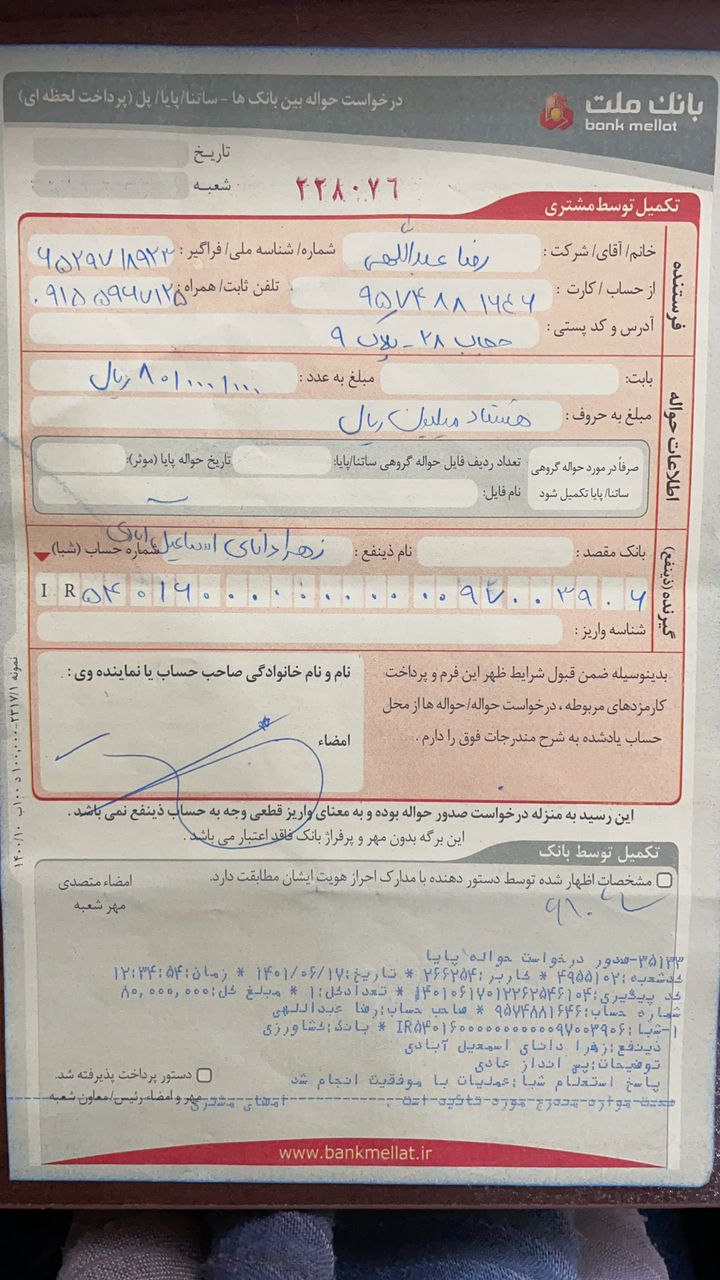 بانک ملت
bank mellat
درخواست حواله بین بانک ها - ساتنا/پایا/ پل (پرداخت لحظه ای)
تاریخ
شعبه
۲۲۸۰۷۶
تکمیل توسط مشتری
فرستنده
خانم/ آقای/ شرکت : رضا عبداللهی شماره/ شناسه ملی/ فراگیر :
از حساب / کارت : ۹۵۷۴۸۸۱۶۴۶ تلفن ثابت/ همراه : ۰۹۱۵۵۹۶۷۱۲۵
آدرس و کد پستی : حجاب ۲۸ - پلاک ۹
اطلاعات حواله
بابت: مبلغ به عدد : ۸۰/۰۰۰/۰۰۰ ریال
مبلغ به حروف : هشتاد میلیون ریال
صرفاً در مورد حواله گروهی
ساتنا/ پایا تکمیل شود
تعداد ردیف فایل حواله گروهی ساتنا/پایا: تاریخ حواله پایا (موثر):
نام فایل:
گیرنده (ذینفع)
بانک مقصد : نام ذینفع : زهرا دانای اسماعیل آبادی شماره حساب (شبا)
IR ۵۴۰۱۶۰۰۰۰۰۰۰۰۰۰۰۹۷۰۰۳۹۰۶
شناسه واریز :
بدینوسیله ضمن قبول شرایط ظهر این فرم و پرداخت
کارمزدهای مربوطه ، درخواست حواله/ حواله ها از محل
حساب یادشده به شرح مندرجات فوق را دارم .
نام و نام خانوادگی صاحب حساب یا نماینده وی :
امضاء
این رسید به منزله درخواست صدور حواله بوده و به معنای واریز قطعی وجه به حساب ذینفع نمی باشد .
این برگه بدون مهر و پرفراژ بانک فاقد اعتبار می باشد .
تکمیل توسط بانک
مشخصات اظهار شده توسط دستور دهنده با مدارک احراز هویت ایشان مطابقت دارد.
امضاء متصدی
مهر شعبه
۳۵۱۳۳-صدور درخواست حواله پایا
کدشعبه:۴۹۵۵۱۰۲ * کاربر:۲۶۶۲۵۴ * تاریخ:۱۴۰۱/۰۶/۱۷ * زمان:۱۲:۳۴:۵۴
کد پیگیری:۱۴۰۱۰۶۱۷۰۱۲۲۶۲۵۴۶۱۰۴ * تعدادکل:۱ * مبلغ کل:۸۰,۰۰۰,۰۰۰
شماره حساب:۹۵۷۴۸۸۱۶۴۶ * صاحب حساب:رضا عبداللهی
۱-شبا:IR۵۴۰۱۶۰۰۰۰۰۰۰۰۰۰۰۹۷۰۰۳۹۰۶ * بانک:کشاورزی
ذینفع:زهرا دانای اسمعیل آبادی
توضیحات:پس انداز عادی
پاسخ استعلام شبا:عملیات با موفقیت انجام شد
صحت موارد مندرج مورد تائید است . امضای مشتری
دستور پرداخت پذیرفته شد.
مهر و امضاء رئیس/ معاون شعبه
www.bankmellat.ir